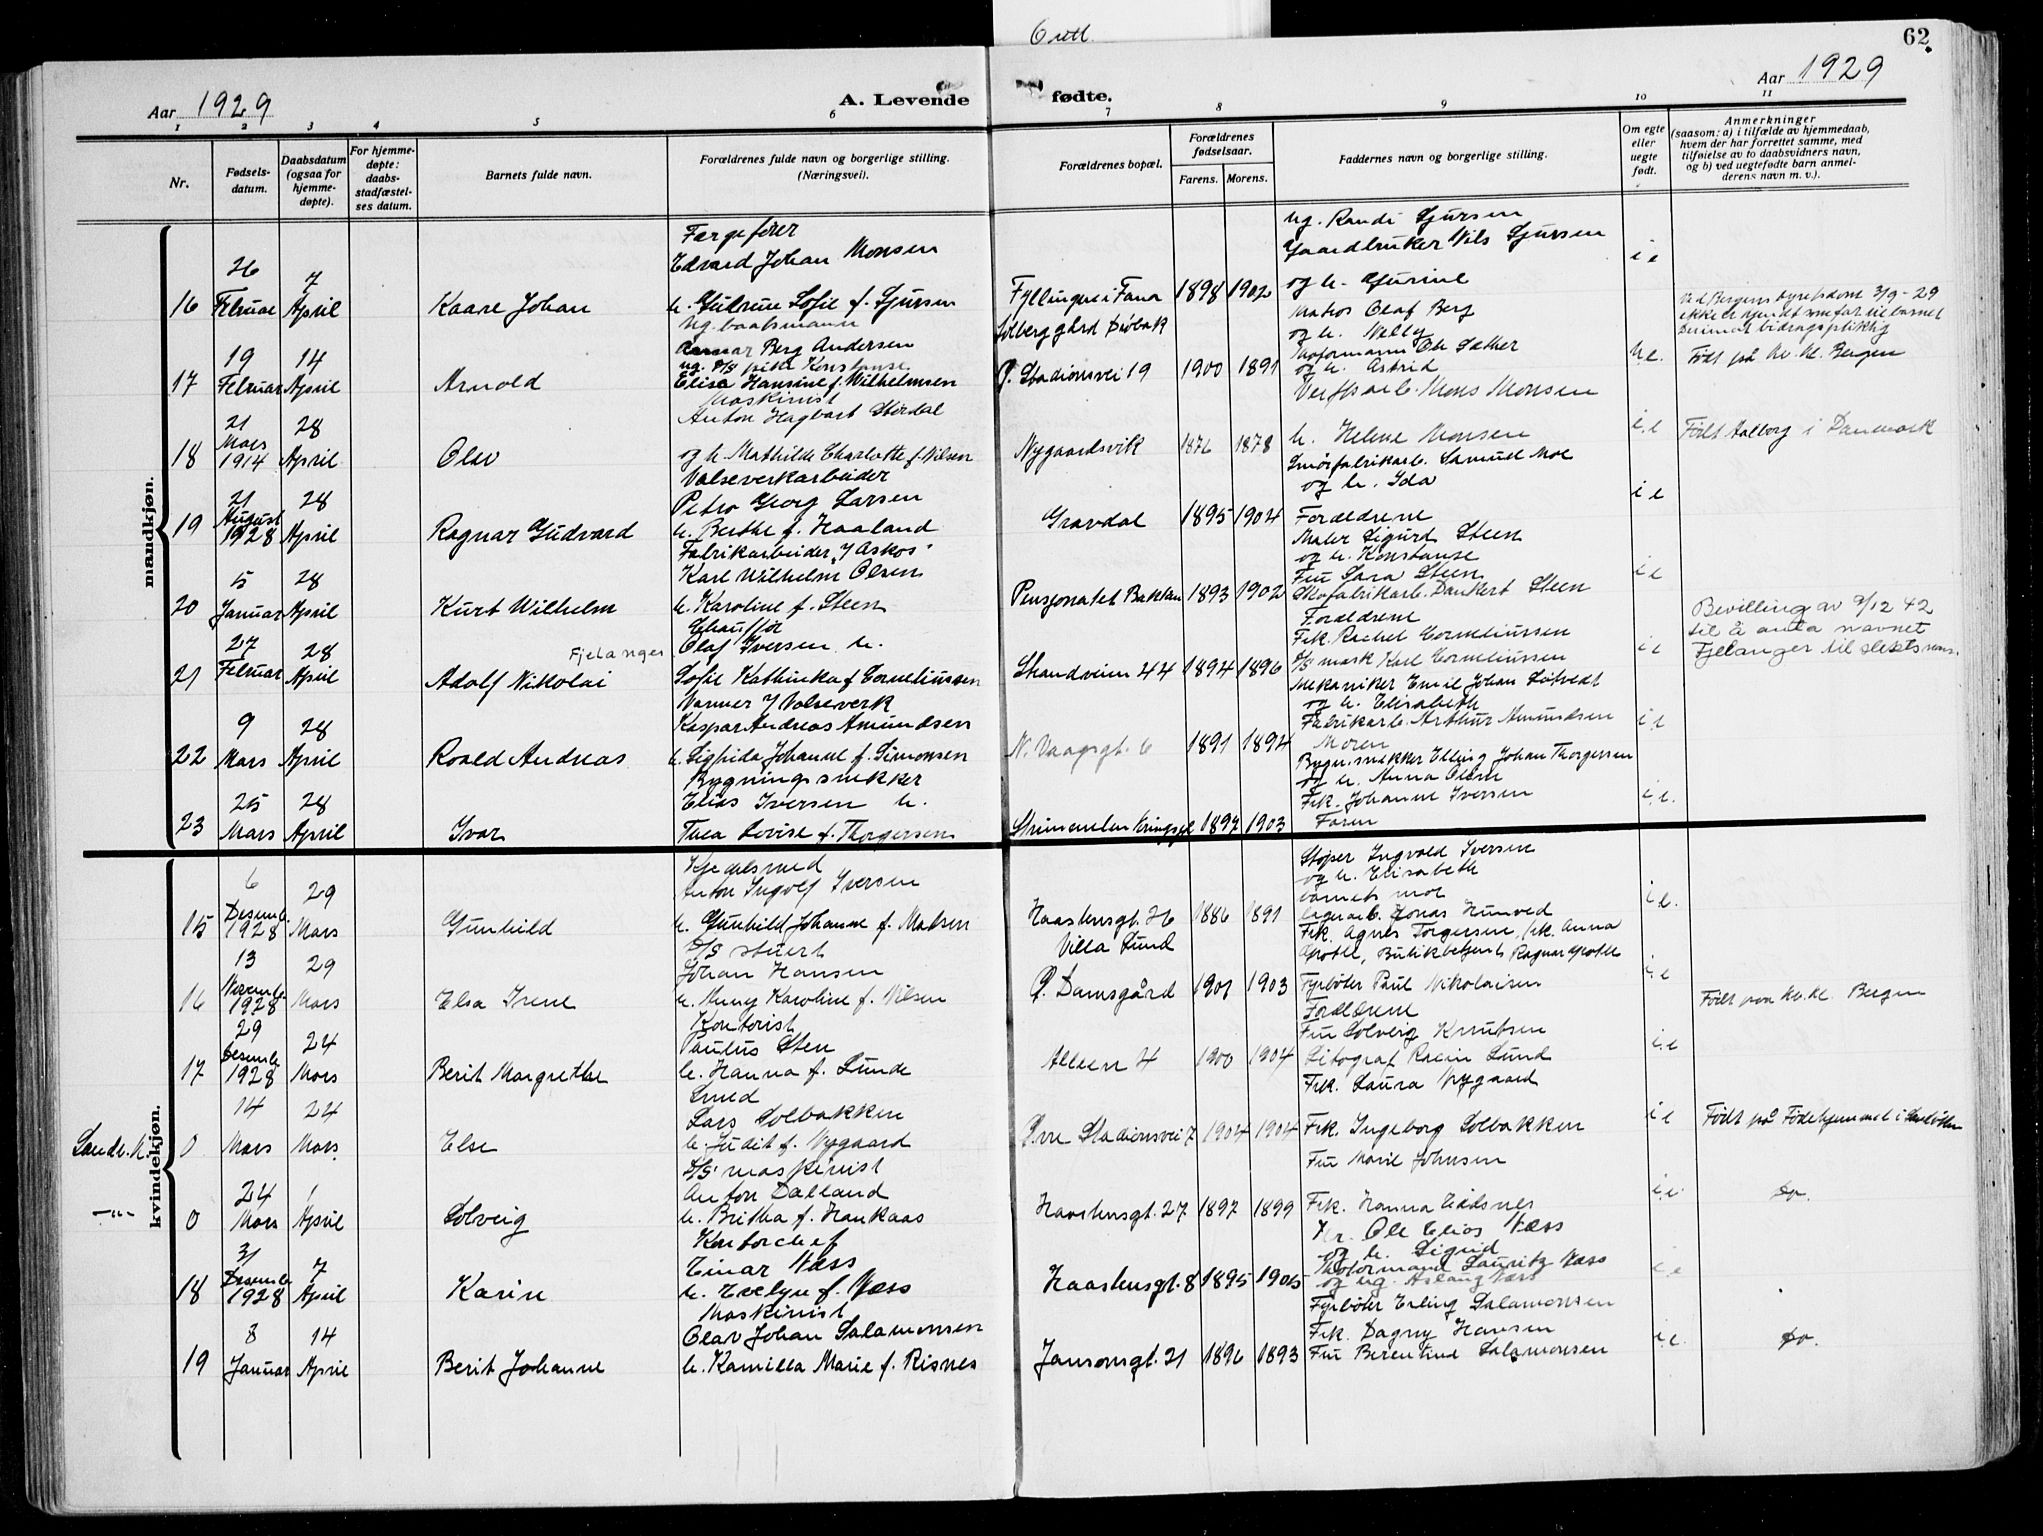 Aar 1929
A. Levende fødte.
Aar 1929
62
1 2 3 4 5 6 7 8 9 10 11
Nr.
Fødsels-
datum.
Daabsdatum
(ogsaa for
hjemme-
døpte).
For hjemme-
døpte:
daabs-
stadfæstel-
ses datum.
Barnets fulde navn.
Forældrenes fulde navn og borgerlige stilling.
(Næringsvei).
Forældrenes bopæl.
Forældrenes
fødselsaar.
Farens. Morens.
Faddernes navn og borgerlige stilling.
Om egte
eller
uegte
født.
Anmerkninger
(saasom: a) i tilfælde av hjemmedaab,
hvem der har forrettet samme, med
tilføielse av to daabsvidners navn,
og b) ved uegtefødte barn anmel-
derens navn m. v.).
mandkjøn.
16
26
Februar
7
April
Kaare Johan
Færgefører
Edvard Johan Monsen
h. Gudrun Sofie f. Sjursen
Fyllingen i Fana
1898 1902
ug. Randi Sjursen
Gaardbruker Nils Sjursen
og h. Gjurine
i e
17
19
Februar
14
April
Arnold
ug. baatsmann
Berg Andersen
ug. pike Konstanse
Elise Hansine f. Wilhelmsen
Solberg gård Drøbak
Ø. Stadionsvei 19
1900 1891
Matros Olaf Berg
og h. Nelly
Skoformann Ole Sæther
og h. Astrid
u e.
Ved Bergens byrets dom 3/9-29
ikke
bidragspliktig
Født på kv. kl. Bergen
18
21
Mars
1914
28
April
Olav
Maskinist
Anton Hagbart Stördal
og h. Mathilde Charlotte f. Nilsen
Nygaardsvik
1876 1878
Verftsarb. Mons Monsen
h. Helene Monsen
Smörfabrikarb. Samuel Moe
og h. Ida
i e
Født Aalborg i Danmark
19
21
August
1928
28
April
Ragnar Gudvard
Valseverkarbeider
Petro Georg Larsen
h. Berthe f. Haaland
Gravdal
1895 1904
Foreldrene
Maler Sigurd Steen
og h. Konstanse
i e
20
5
Januar
28
April
Kurt Wilhelm
Fabrikarbeider
Karl Wilhelm Olsen
h. Karoline f. Steen
Pensjonatet Bakken
1893 1902
Fru Sara Steen
Skofabrikarb. Dankert Steen
Foreldrene
i e
21
27
Februar
28
April
Adolf Nikolai
Fjelanger
Chauffør
Olaf Iversen h.
Sofie Kathinka f. Corneliussen
Strandveien 44
1894 1896
Frk. Rachel Corneliussen
Karl Corneliussen
Mekaniker Emil Johan
og h. Elisabeth
i e
Bevilling av 9/12 42
til å anta navnet
Fjelanger til slektsnavn.
22
9
Mars
28
April
Roald Andreas
Varmer / Valseverk
Kaspar Andreas Amundsen
h. Sigfrida Johanne f. Simonsen
N. Vaagsgt. 6
1891 1894
Fabrikarb. Arthur Amundsen
Moren
i e
23
25
Mars
28
April
Ivar
Bygningssnekker
Elias Iversen h.
Thea Lovise f. Thorgersen
1897 1903
Bygn. snekker Elling Johan Thorgersen
og h. Anna Oline
Frk. Johanne Iversen
Faren
i e.
kvindekjøn.
15
6
Desemb.
1928
29
Mars
Gunhild
Kjedelsmed
Anton Ingolf Iversen
h. Gunhild Johanne f. Madsen
Haastensgt. 26
1886 1891
Støper Ingvald Iversen
og h. Elisabeth
barnets mor
i e.
16
13
Novemb.
1928
29
Mars
Elsa Irene
D/S stuert
Johan Hansen
h. Nuny Karoline f. Nilsen
Villa Lund
Ø. Damsgård
1901 1903
Lagerarb. Jonas Hunved
Frk. Agnes Torgersen, frk. Anna
Apothe, Butikbetjent Ragnar Apothe
Fyrbøter Paul Nikolaisen
Foreldrene
i e
Født paa kv. kl. Bergen
17
29
Desemb.
1928
24
Mars
Berit Margrethe
Kontorist
Paulus Sten
h. Hanna f. Lunde
Alleen 4
1900 1904
Fru Solveig Knutsen
Litograf Racin Lund
Frk. Laura Nygaard
i e
Sandv. k.
0
14
Mars
24
Mars
Else
Smed
Lars Solbakken
h. Judit f. Nygaard
Øvre Stadionsvei 7
1904 1904
Frk. Ingeborg Solbakken
Fru Marie Johnsen
i e
Født på Fødehjemmet i
–"–
0
24
Mars
1
April
Solveig
D/S maskinist
Anton Dalland
h. Britha f. Haukaas
Haastensgt. 27
1897 1899
Frk. Hanna Eidsnes
i e
do.
18
31
Desemb.
1928
7
April
Karin
Kontorchef
Einar Næss
h. Evelyn f. Næss
Haastensgt. 8
1895 1905
Hr. Ole Elias Næss
og h. Sigrid
Skoformann Lauritz Næss
og ug. Aslaug Næss
i e
19
8
Januar
14
April
Berit Johanne
Maskinist
Olav Johan Salamonsen
h. Kamilla Marie f. Risnes
Jansonsgt. 21
1896 1893
Fyrbøter Erling Salamonsen
Frk. Dagny Hansen
Fru Berentine Salamonsen
i e.
do.